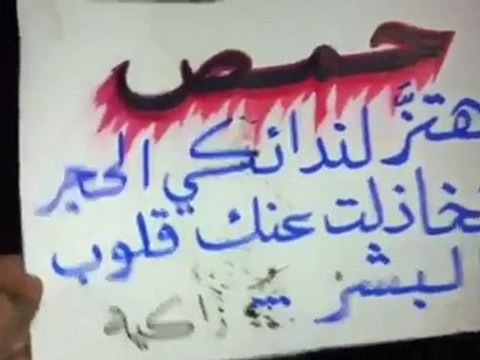 حمص
هتزّ لندائكي الحجر
تخاذلت عنك قلوب
البشر ...